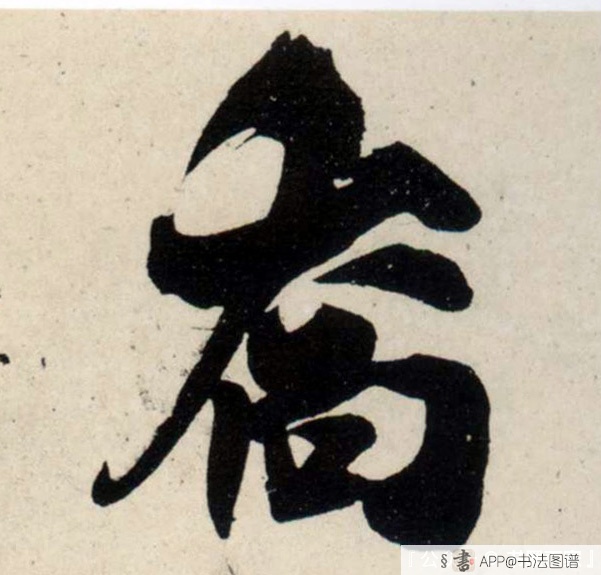 喬
§書 APP@书法图谱